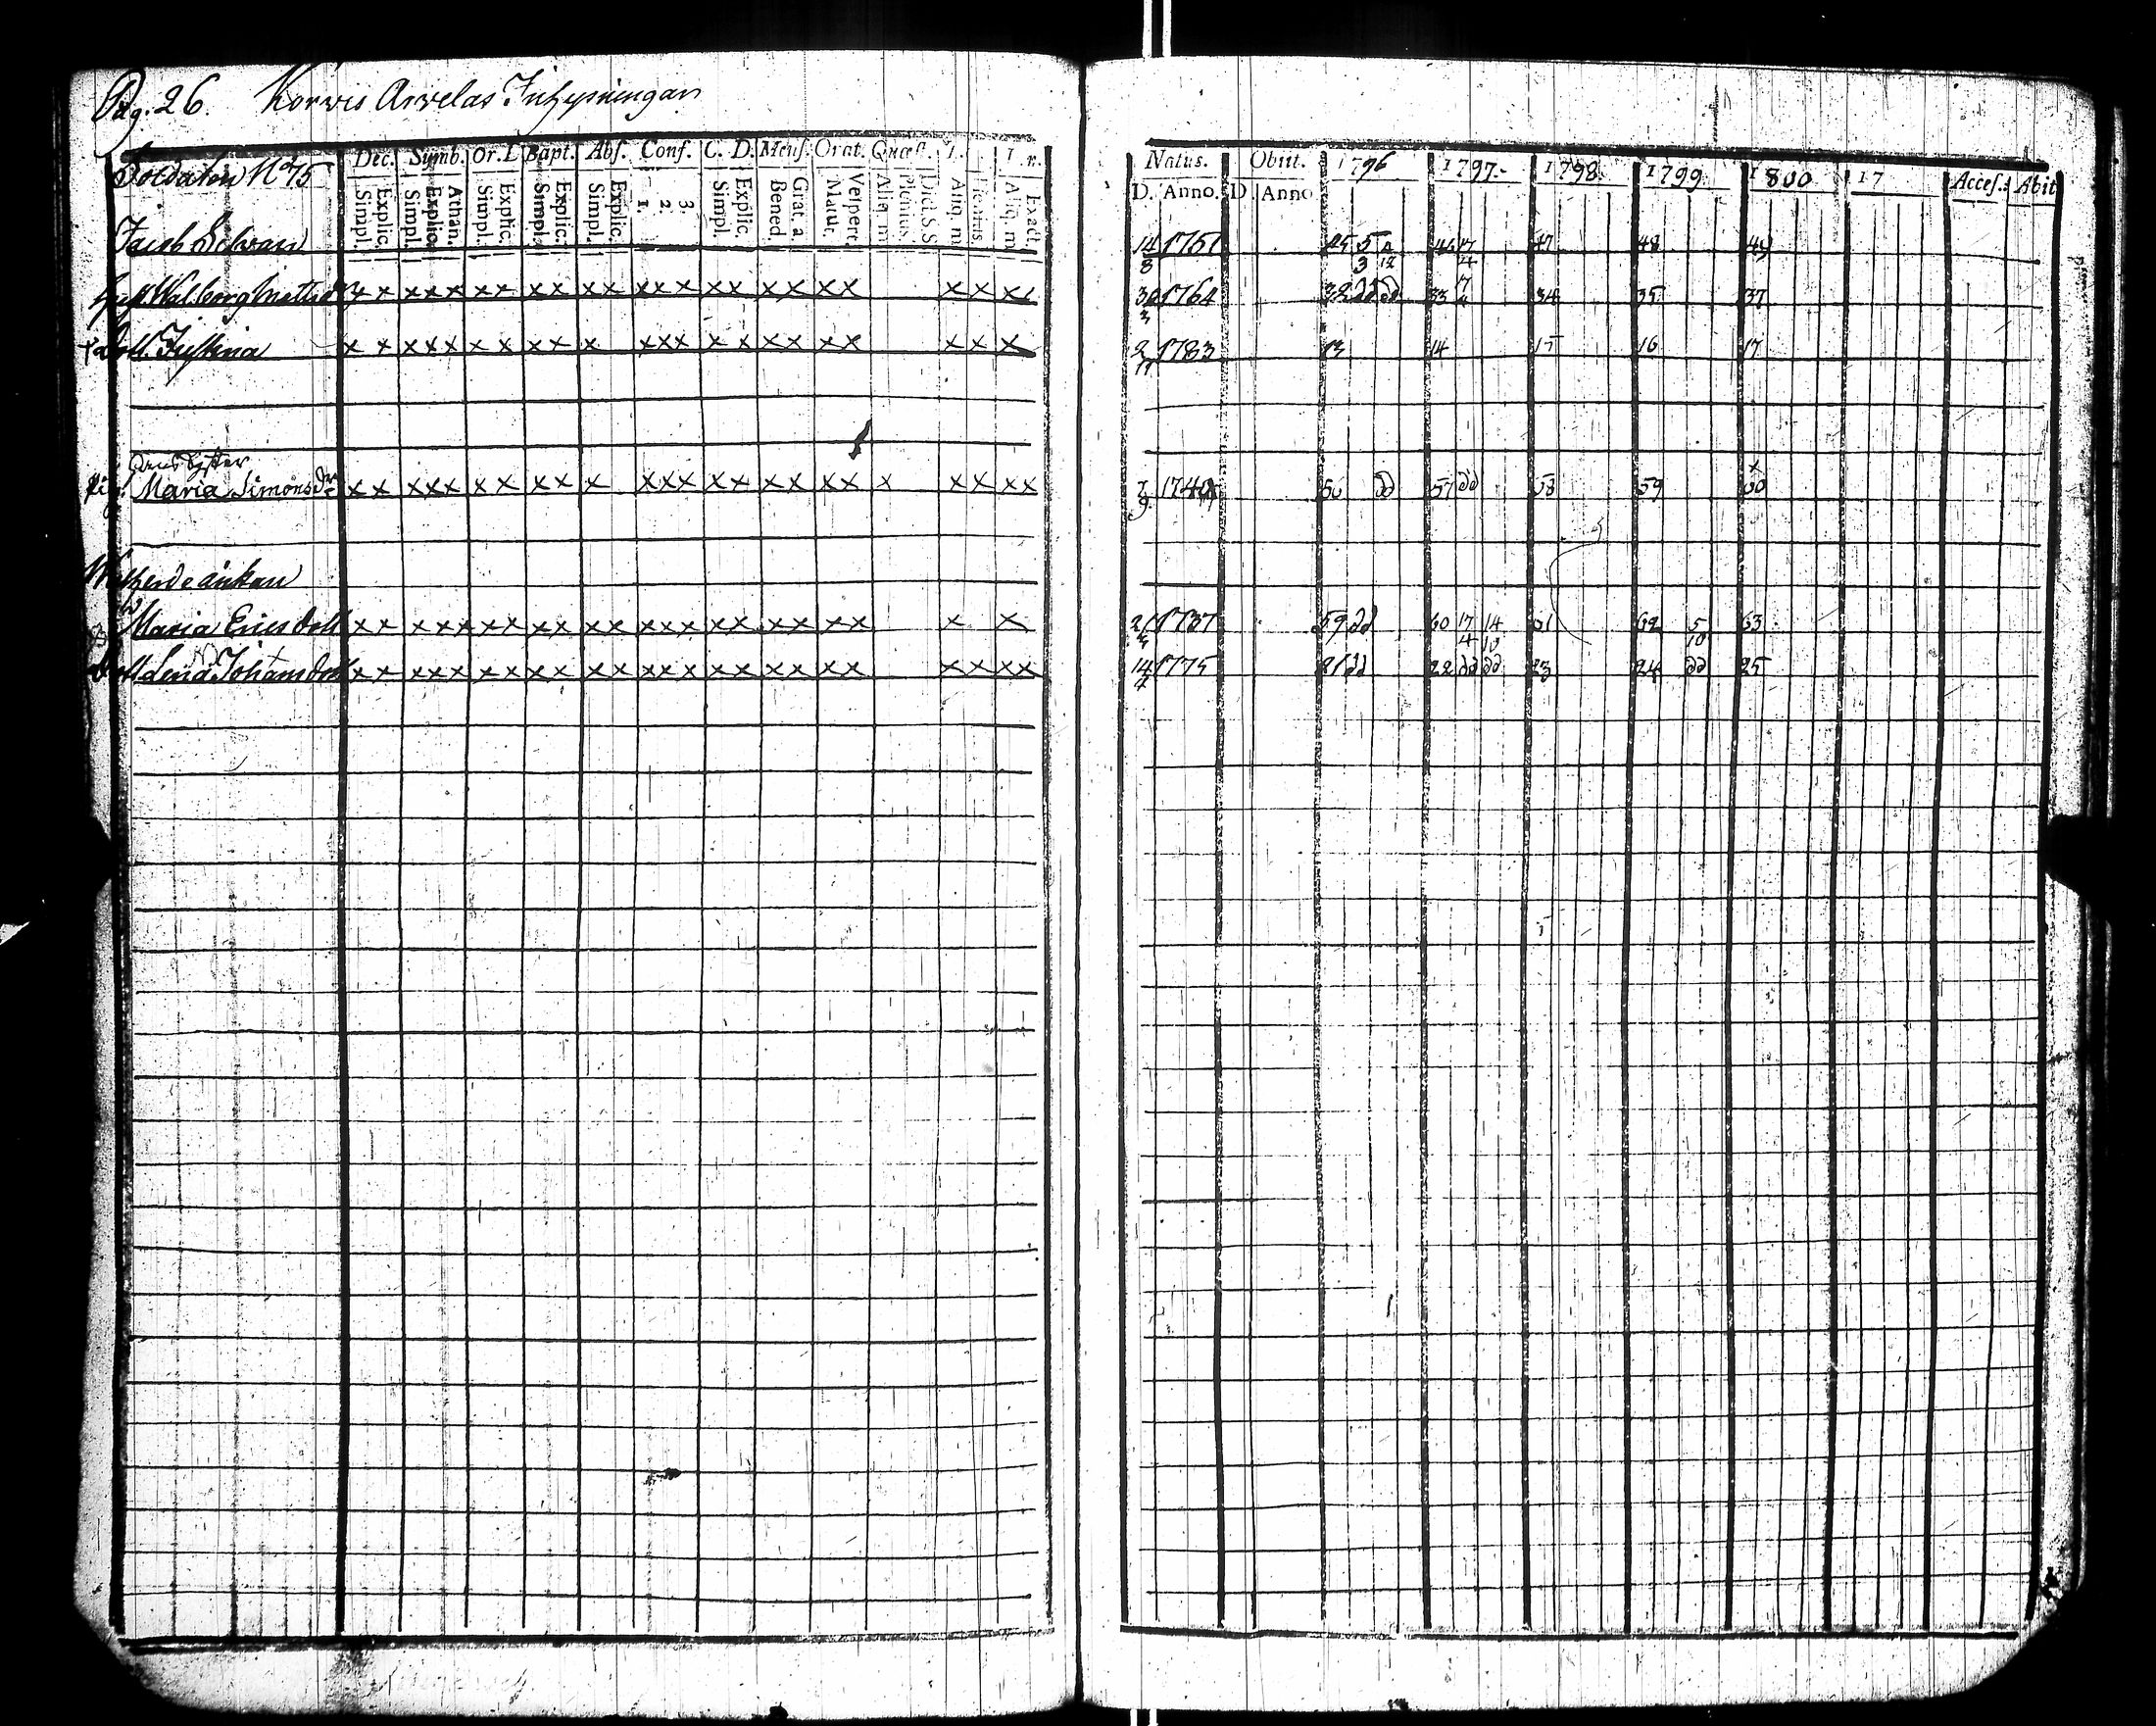 Pag. 26. Korvis Arvelas Inhysningar
Dec. Symb. Or. D Bapt. Abs. Conf. C. D. Mens. Orat. Quæst.
Natus. Obiit. 1796 1797 1798 1799 1800 17 Acces. Abit
Simpl. Explic. Simpl. Explic. Athan. Simpl. Explic. Simpl. Explic. Simpl. Explic. 1. 2. 3. Simpl. Explic. Bened. Grat. a. Matut. Vespert. Aliq. m. Plenius. Dict. S. S. Aliq. m. Plenius. Aliq. m. Exact.
D. Anno. D. Anno
Soldaten No 75
Jacob 14 8 1751 45 5 3 46 17 4 47 48 49
Hust. Walborg Mattsd x x x x x x x x x x x x x x x x x x x x x x x x 1764 33 17 4 34 35 37
Dott. Justina x x x x x x x x x x x x x x x x x x x x x x 2 11 1783 13 14 15 16 17
Hans Syster
Pig. Maria Simonsdr x x x x x x x x x x x x x x x x x x x x x x x x 7 9 56 dd 57 dd 58 59 60
enkan
Maria Ericsdott x x x x x x x x x x x x x x x x x x x x x x 21 1737 59 dd 60 17 4 14 10 61 62 5 10 63
Dott Lena Johansdott x x x x x x x x x x x x x x x x x x x x x x x x 14 4 1775 21 dd 22 dd dd 23 24 dd 25